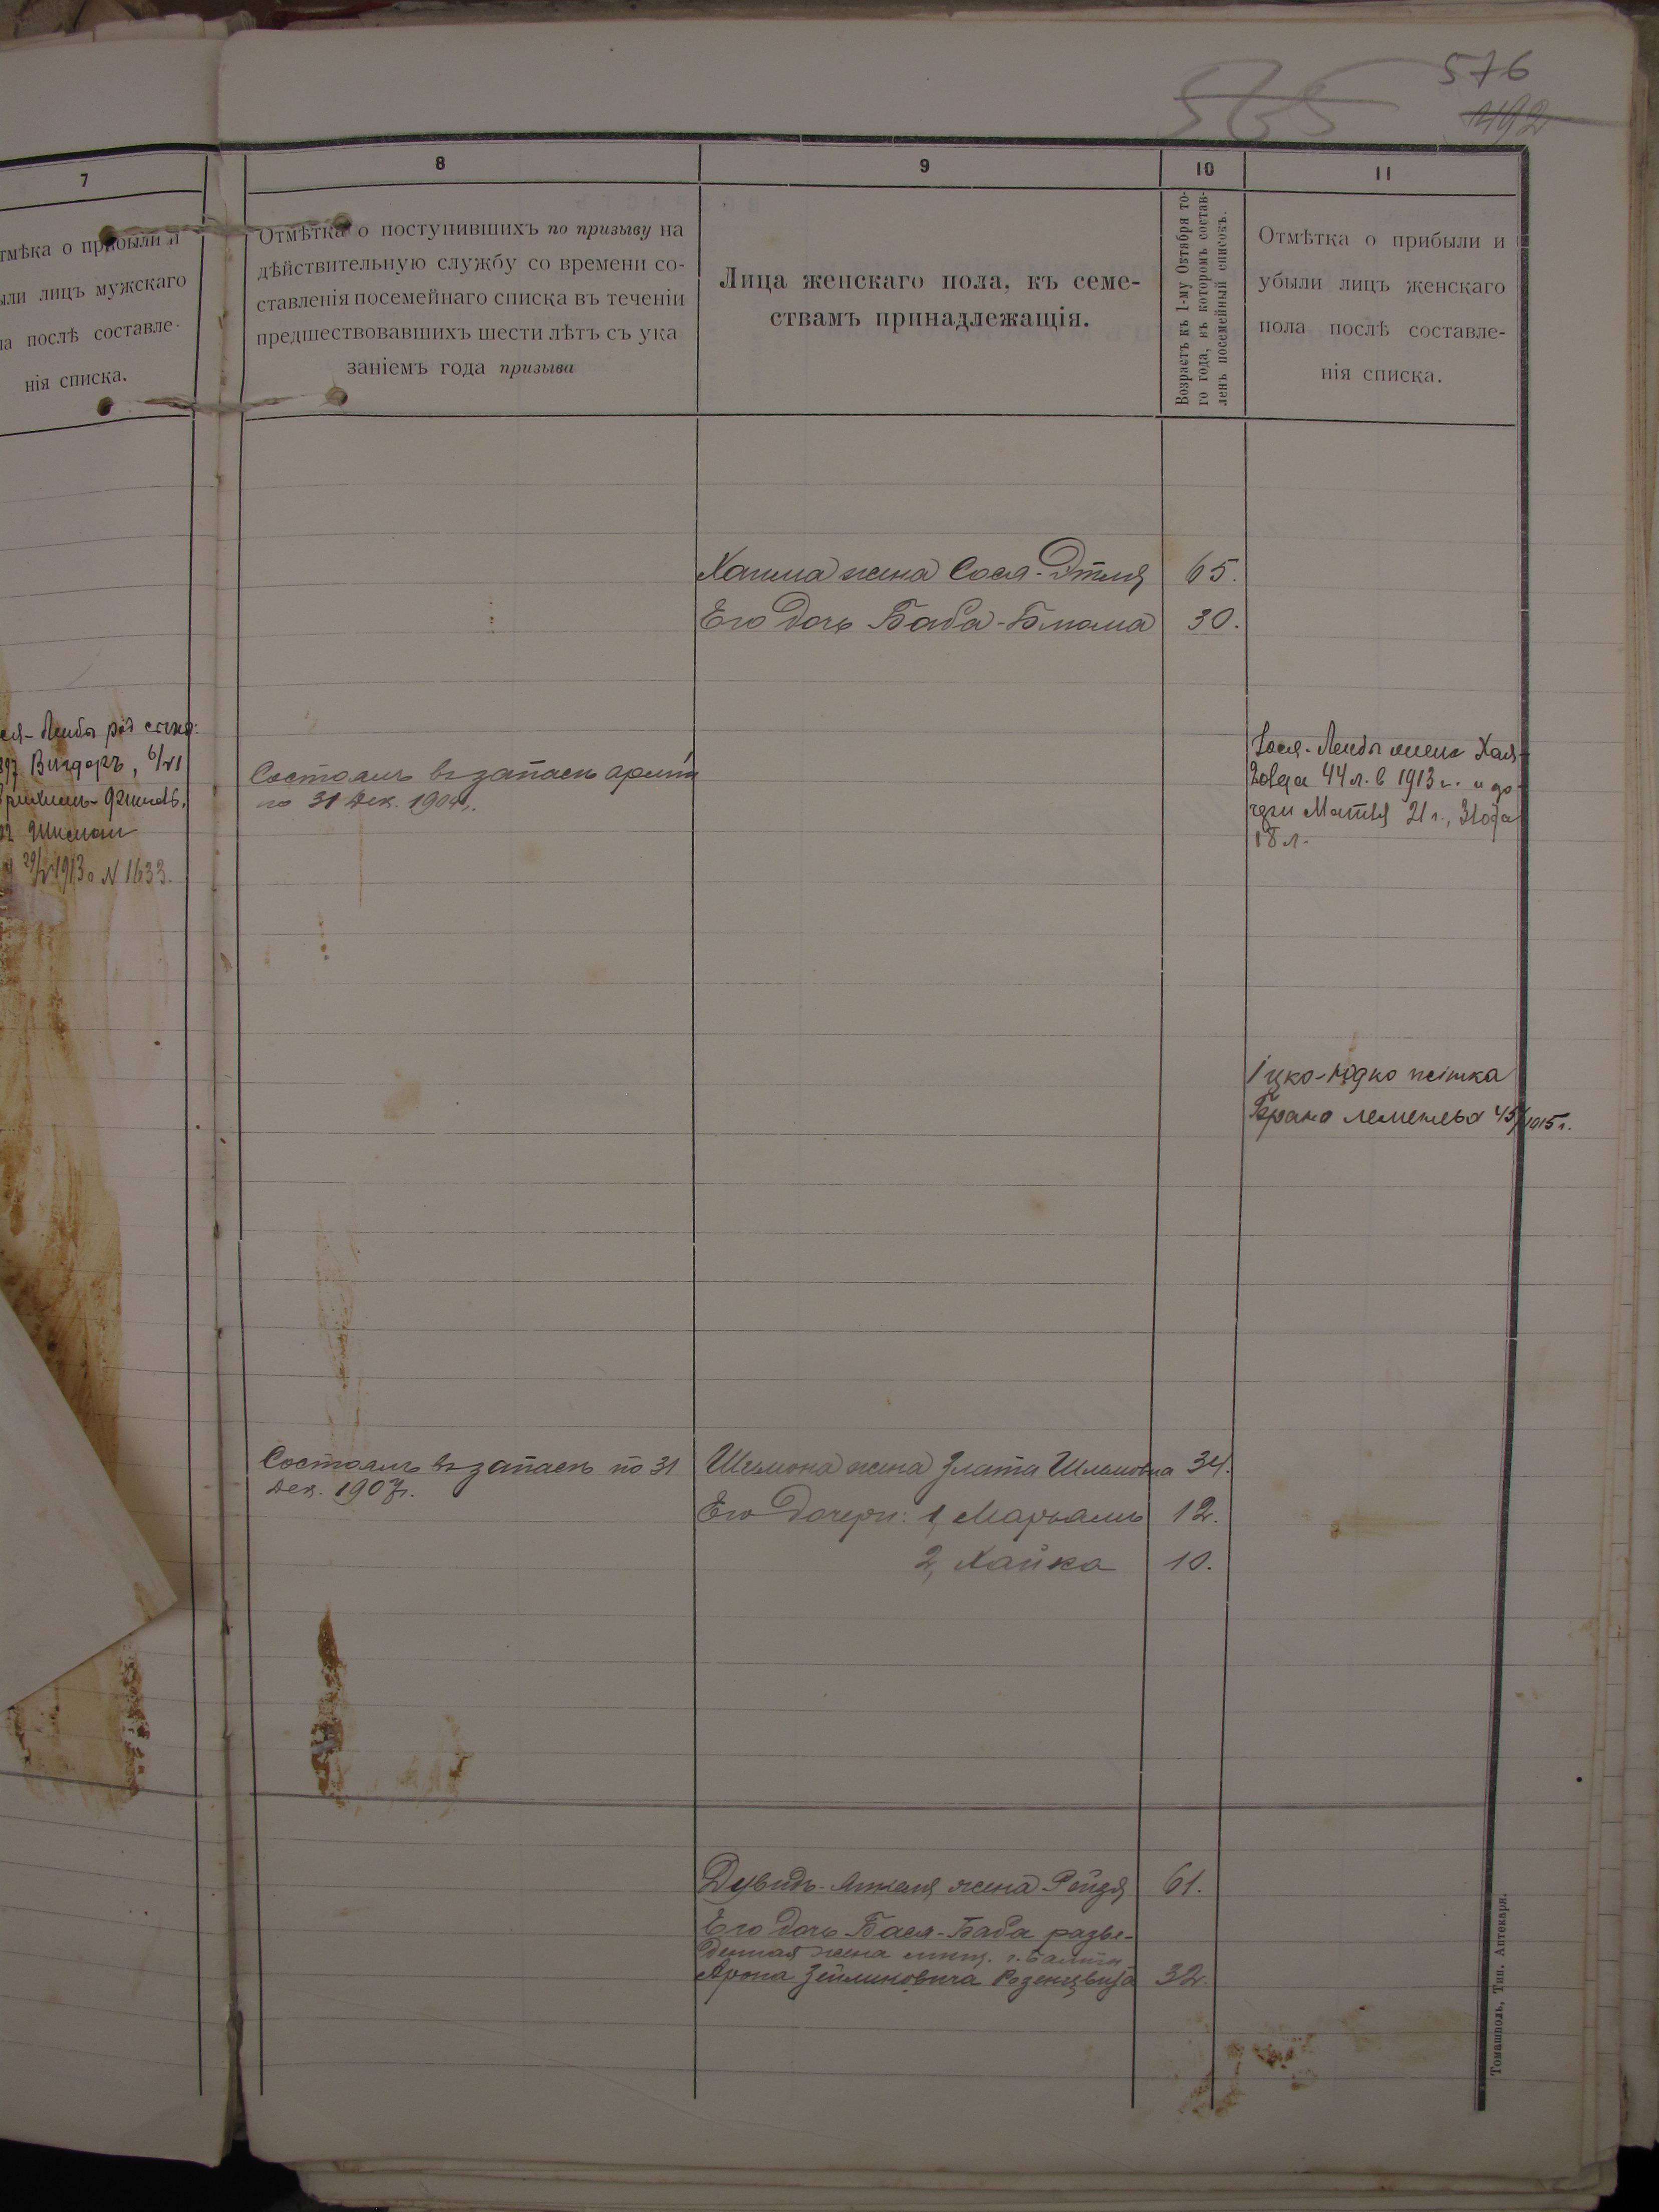 576
565
492
7
8
9
10
11
тмѣка о прибыли и
ыли лицъ мужскаго
ла послѣ составле-
нія списка.
Отмѣтка о поступившихъ по призыву на
дѣйствительную службу со времени со-
ставленія посемейнаго списка въ теченіи
предшествовавшихъ шести лѣтъ съ ука
заніемъ года призыва
Лица женскаго пола, къ семе-
ствамъ принадлежащія.
Возрастъ къ 1-му Октября то-
го года, въ которомъ состав-
ленъ посемейный списокъ.
Отмѣтка о прибыли и
убыли лицъ женскаго
пола послѣ составле-
нія списка.
Хаима жена Сося-Этля 65.
Его дочь Баба-Блюма 30.
Лейбы
397 , 6/VI
22
1913 № 1633.
Состоялъ въ запасѣ арміи
по 31 Дек. 1904 г.
Іося-Лейбы жена Хая-
44 л. в 1913 г. и до-
чери 21 г., Злота
18 л.
Іцко-Юдко жінка
45/1915 г.
Состоялъ въ запасѣ по 31
Дек. 1907 г.
Шимона жена Злата Шлемовна 34.
Его дочери: 1, Марьямъ 12.
2, Хайка 10.
Дувидъ- жена Рейзя 61.
Его дочь Бася-Баба разве-
денная жена мѣщ. г. Балты
Арона Зейликовича Розенцвита 32.
Томашполь, Тип. Аптекаря.